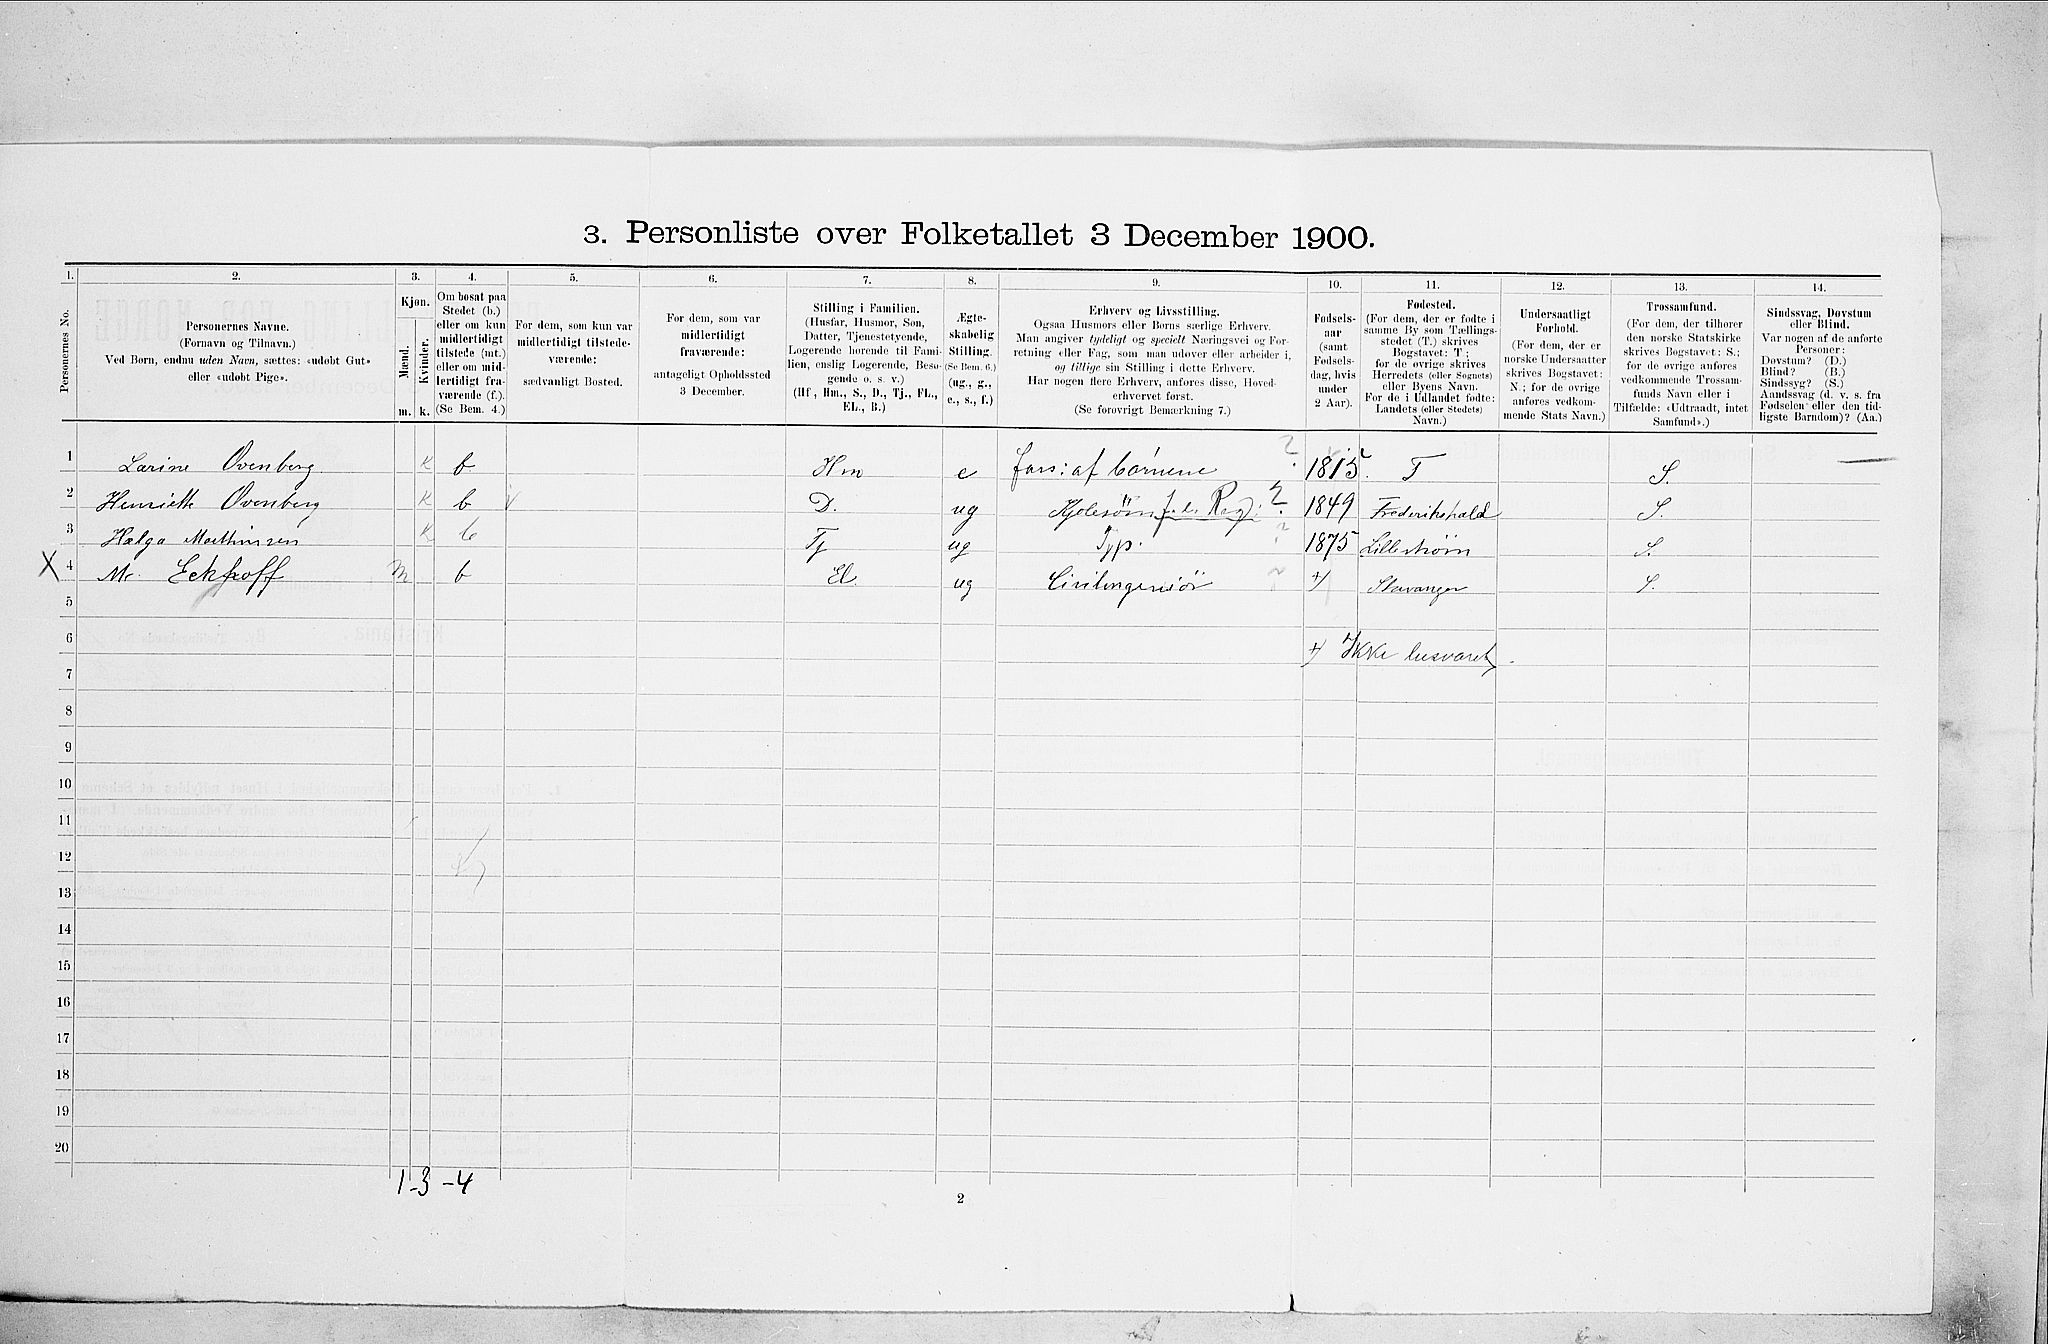 3. Personliste over Folketallet 3 December 1900.
1. 2. 3. 4. 5. 6. 7. 8. 9. 10. 11. 12. 13. 14.
Personernes No.
Personernes Navne.
(Fornavn og Tilnavn.)
Ved Børn, endnu uden Navn, sættes: «udøbt Gut»
eller «udøbt Pige».
Kjøn.
Mænd.
Kvinder.
m. k.
Om bosat paa
Stedet (b.)
eller om kun
midlertidigt
tilstede (mt.)
eller om mid-
lertidigt fra-
værende (f.).
(Se Bem. 4.)
For dem, som kun var
midlertidigt tilstede-
værende:
sædvanligt Bosted.
For dem, som var
midlertidigt
fraværende:
antageligt Opholdssted
3 December.
Stilling i Familien.
(Husfar, Husmor, Søn,
Datter, Tjenestetyende,
Logerende hørende til Fami-
lien, enslig Logerende, Besø-
gende o. s. v.)
(Hf, Hm., S., D., Tj., FL.,
EL., B.)
Ægte-
skabelig
Stilling.
(Se Bem. 6.)
(ug., g.,
e., s., f.)
Erhverv og Livsstilling.
Ogsaa Husmors eller Børns særlige Erhverv.
Man angiver tydeligt og specielt Næringsvei og For-
retning eller Fag, som man udøver eller arbeider i,
og tillige sin Stilling i dette Erhverv.
Har nogen flere Erhverv, anføres disse, Hoved-
erhvervet først.
(Se forøvrigt Bemærkning 7.)
Fødsels-
aar
(samt
Fødsels-
dag, hvis
under
2 Aar).
Fødested.
(For dem, der er fødte i
samme By som Tællings-
stedet (T.) skrives
Bogstavet: T;
for de øvrige skrives
Herredets (eller Sognets)
eller Byens Navn.
For de i Udlandet fødte:
Landets (eller Stedets)
Navn.)
Undersaatligt
Forhold.
(For dem, der er
norske Undersaatter
skrives Bogstavet:
N.; for de øvrige
anføres vedkom-
mende Stats Navn.)
Trossamfund.
(For dem, der tilhører
den norske Statskirke
skrives Bogstavet: S.;
for de øvrige anføres
vedkommende Trossam-
funds Navn eller i
Tilfælde: «Udtraadt, intet
Samfund».)
Sindssvag, Døvstum
eller Blind.
Var nogen af de anførte
Personer:
Døvstum? (D.)
Blind? (B.)
Sindssyg? (S.)
Aandssvag (d. v. s. fra
Fødselen eller den tid-
ligste Barndom)? (Aa.)
1 Larine Ovenberg k b Hm e fors: af børnene ? 1815 T S.
2 Henriette Ovenberg k b D. ug ? 1849 Frederikshald S.
3 Helga Mathinsen k b Tj ug Typ. ? 1875 Lillestrøm S.
X 4 Mr. Eckhoff m b El. ug Civilingeniør ? +) Stavanger S.
5
6 +) Ikke besvaret.
7
8
9
10
11
12
13
14
15
16
17
18
19
20
1-3-4
2